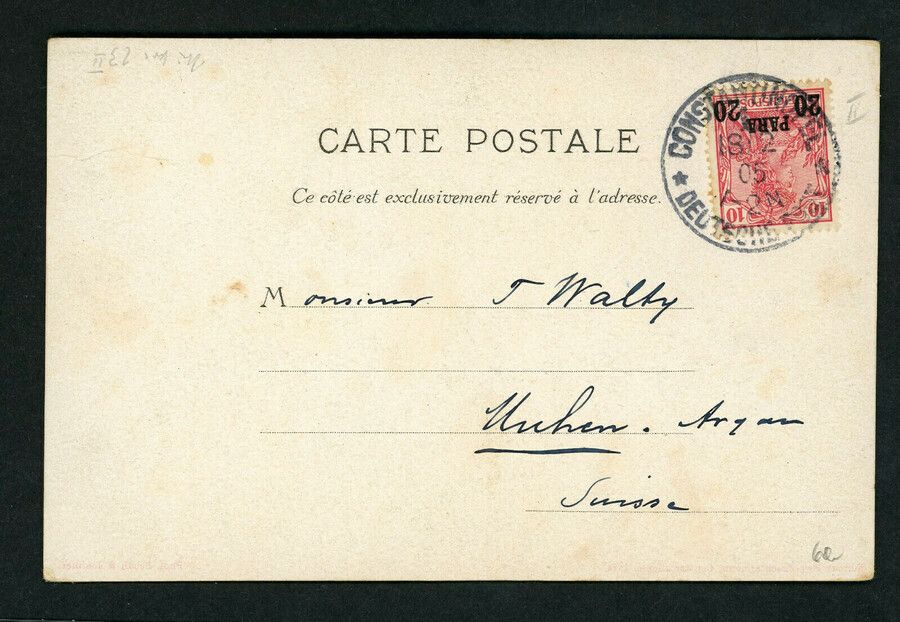 CARTE POSTALE
Ce côté est exclusivement réservé à l'adresse.
CONSTANTINOPEL
18 12
05
2 N
* DEUTSCHE
20 20
PARA
10 10
Monsieur T Walty
Muhen. Argau
Suisse
II
60